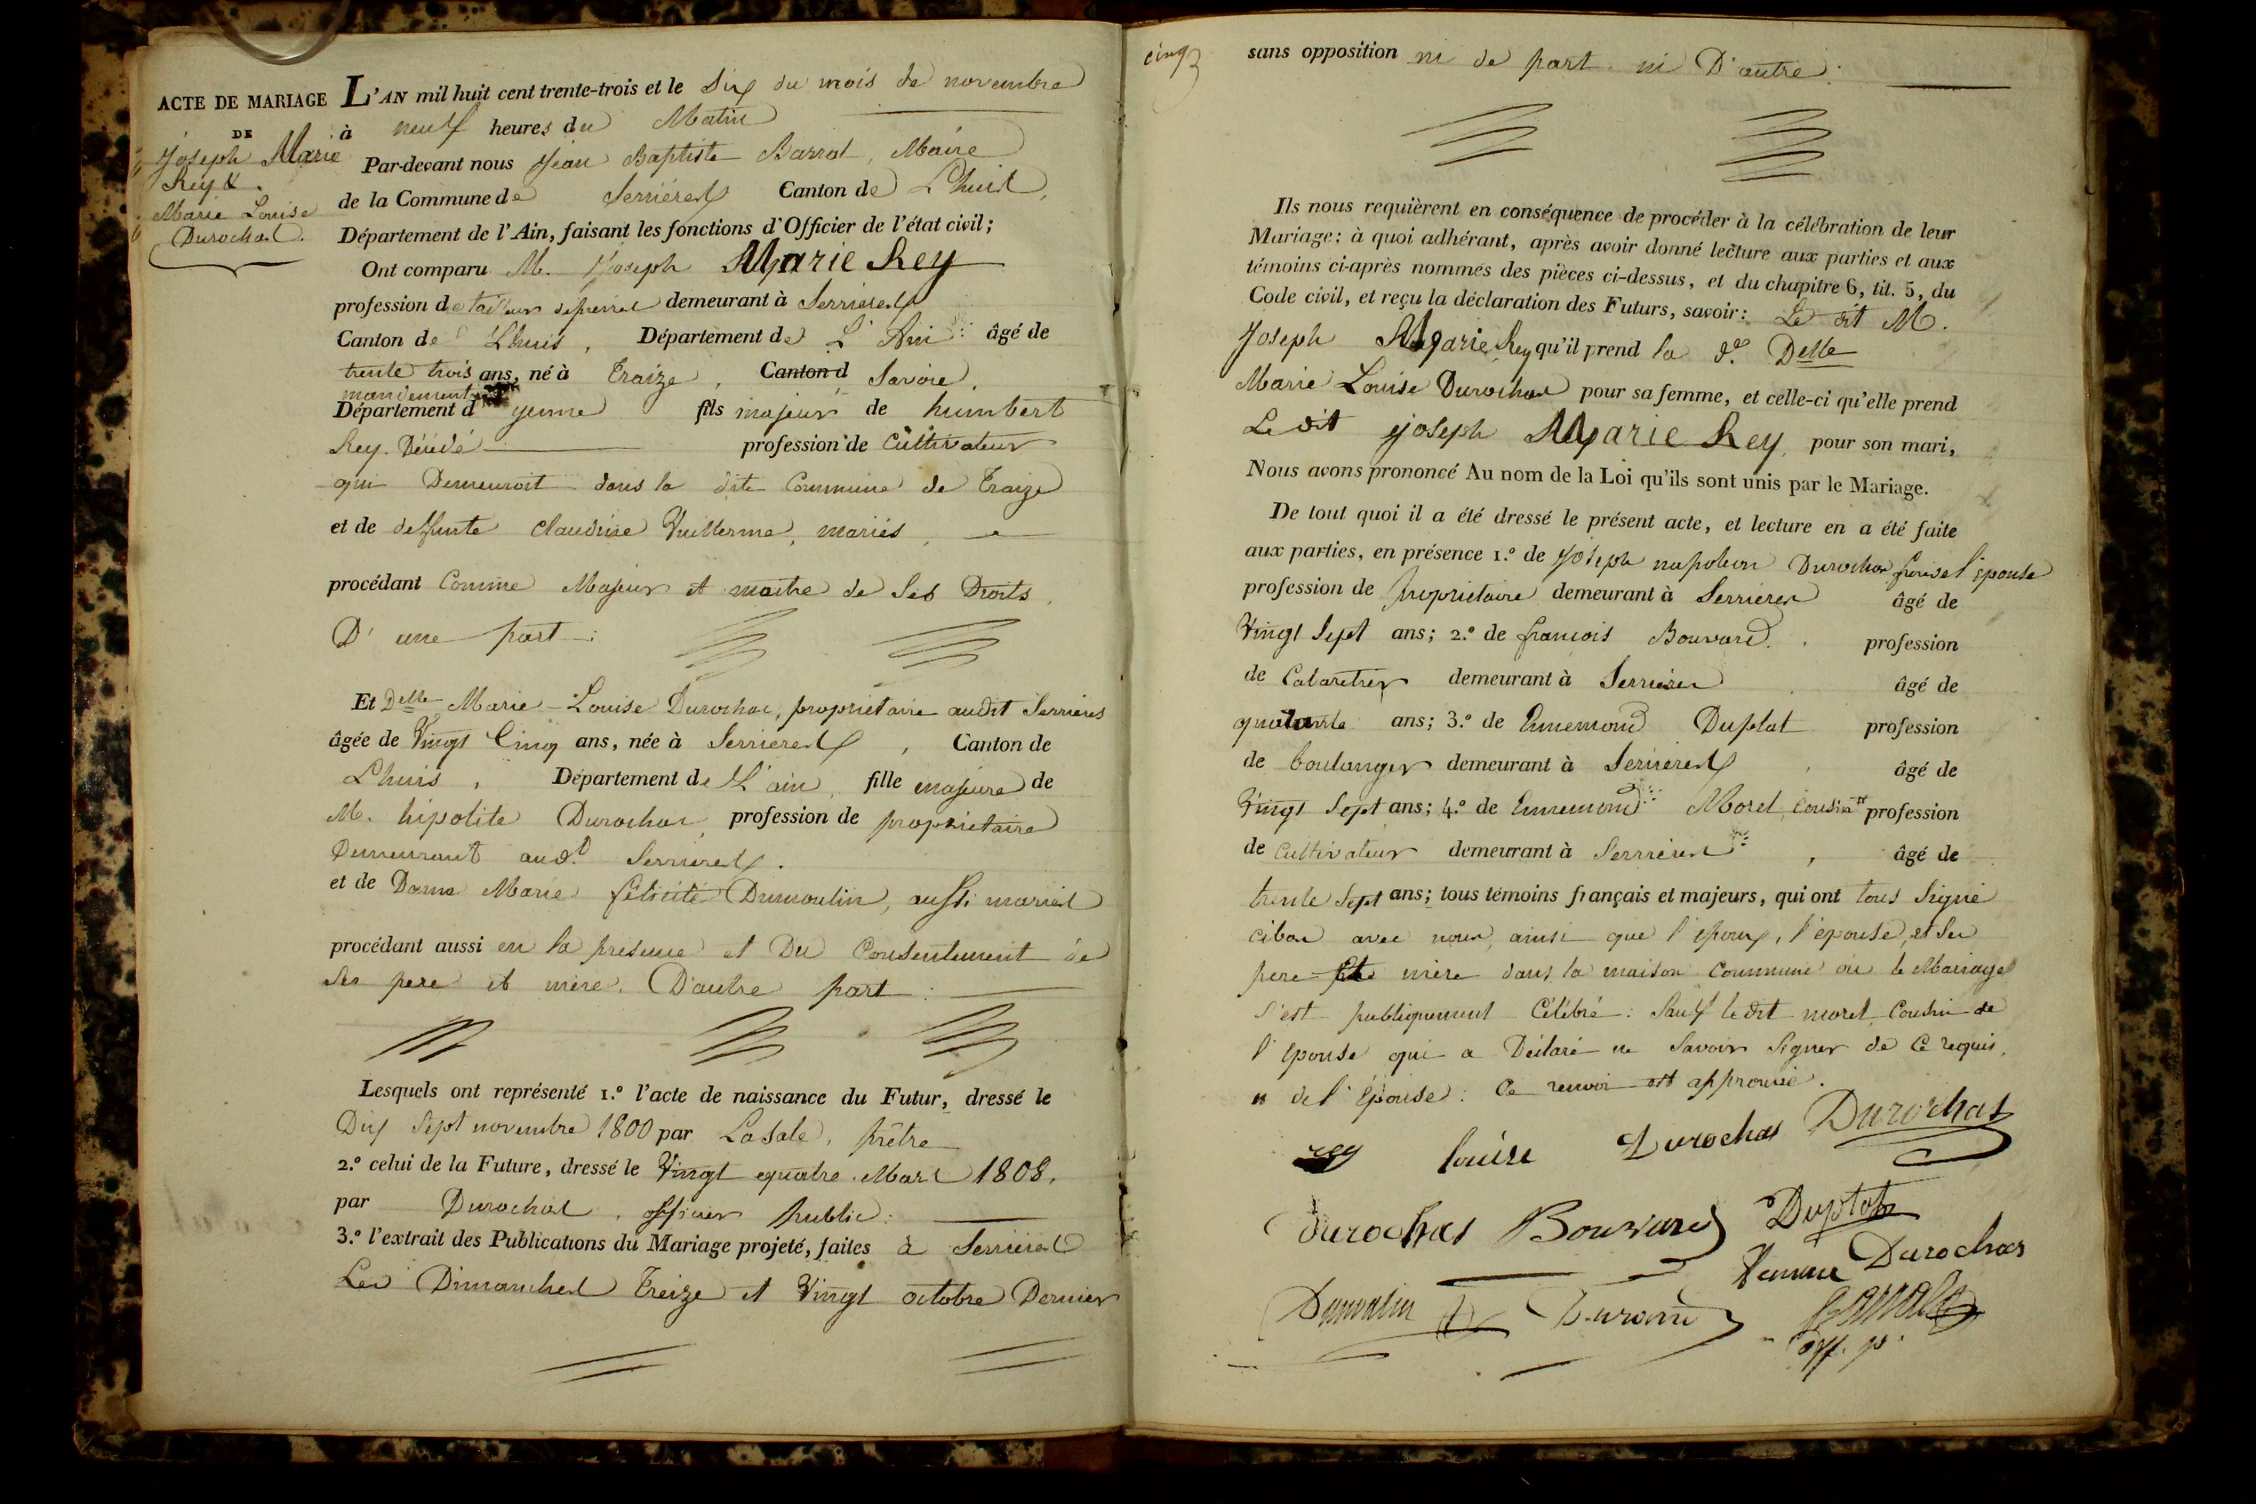 ACTE DE MARIAGE
DE
Joseph Marie
Rey &
Marie Louise
Durochat.
L'AN mil huit cent trente-trois et le Dix du mois de novembre
à neuf heures du Matin
Par-devant nous Jean Baptiste Barral, Maire
de la Commune de Serrieres Canton de Lhuis,
Département de l'Ain, faisant les fonctions d'Officier de l'état civil;
Ont comparu M. Joseph Marie Rey
profession de tailleur de pierres demeurant à Serrieres
Canton de Lhuis, Département de L'Ain âgé de
trente trois ans, né à Traize, Canton d Savoie,
mandement
Département d yenne fils majeur de humbert
Rey Décédé profession de Cultivateur
qui Demeuroit dans la dite Commune de Traize
et de deffunte claudine Vuillerme, mariés,
procédant Comme Majeur et maitre de Ses Droits,
D'une part:
Et Delle Marie-Louise Durochat, propriétaire audit Serrieres
âgée de Vingt Cinq ans, née à Serrieres, Canton de
Lhuis, Département de L'ain, fille majeure de
M. hipolite Durochat, profession de propriétaire
Demeurant aud.t Serrieres.
et de Dame Marie félicité Dumoulin, aussi mariés
procédant aussi en la présence et Du Consentement de
Ses pere et mère. D'autre part:
Lesquels ont représenté 1.º l'acte de naissance du Futur, dressé le
Dix Sept novembre 1800 par Lasale, prêtre
2.º celui de la Future, dressé le Vingt quatre Mars 1808.
par Durochat, officier Public:
3.º l'extrait des Publications du Mariage projeté, faites à Serrieres
Les Dimanches Treize et Vingt octobre Dernier
cinq
sans opposition ni de part ni D'autre.
Ils nous requièrent en conséquence de procéder à la célébration de leur
Mariage: à quoi adhérant, après avoir donné lecture aux parties et aux
témoins ci-après nommés des pièces ci-dessus, et du chapitre 6, tit. 5, du
Code civil, et reçu la déclaration des Futurs, savoir: Le dit M.
Joseph Marie Rey qu'il prend la d.e Delle
Marie Louise Durochat pour sa femme, et celle-ci qu'elle prend
Le dit joseph Marie Rey, pour son mari,
Nous avons prononcé Au nom de la Loi qu'ils sont unis par le Mariage.
De tout quoi il a été dressé le présent acte, et lecture en a été faite
aux parties, en présence 1.º de Joseph napoleon Durochat, l'épouse
profession de Propriétaire demeurant à Serrieres âgé de
Vingt Sept ans; 2.º de françois Bouvard. profession
de Cabaretier demeurant à Serrieres âgé de
quarante ans; 3.º de Ennemond Duplat profession
de boulanger demeurant à Serrieres âgé de
Vingt Sept ans; 4.º de Ennemond Morel, Cousin profession
de Cultivateur demeurant à Serrieres, âgé de
trente Sept ans; tous témoins français et majeurs, qui ont tous Signé
cibas avec nous, ainsi que l'époux, l'épouse, et Ses
pere et mère dans la maison Commune où le Mariage
s'est publiquement Célébré: Sauf le dit morel Cousin de
l'épouse qui a Déclaré ne Savoir Signer de Ce requis.
" de l'épouse: Ce renvoi est approuvé.
rey louise Durochas Durochat
durochas Bouvard Duplat
femme Durochas
Dumolin Barral
off. p.